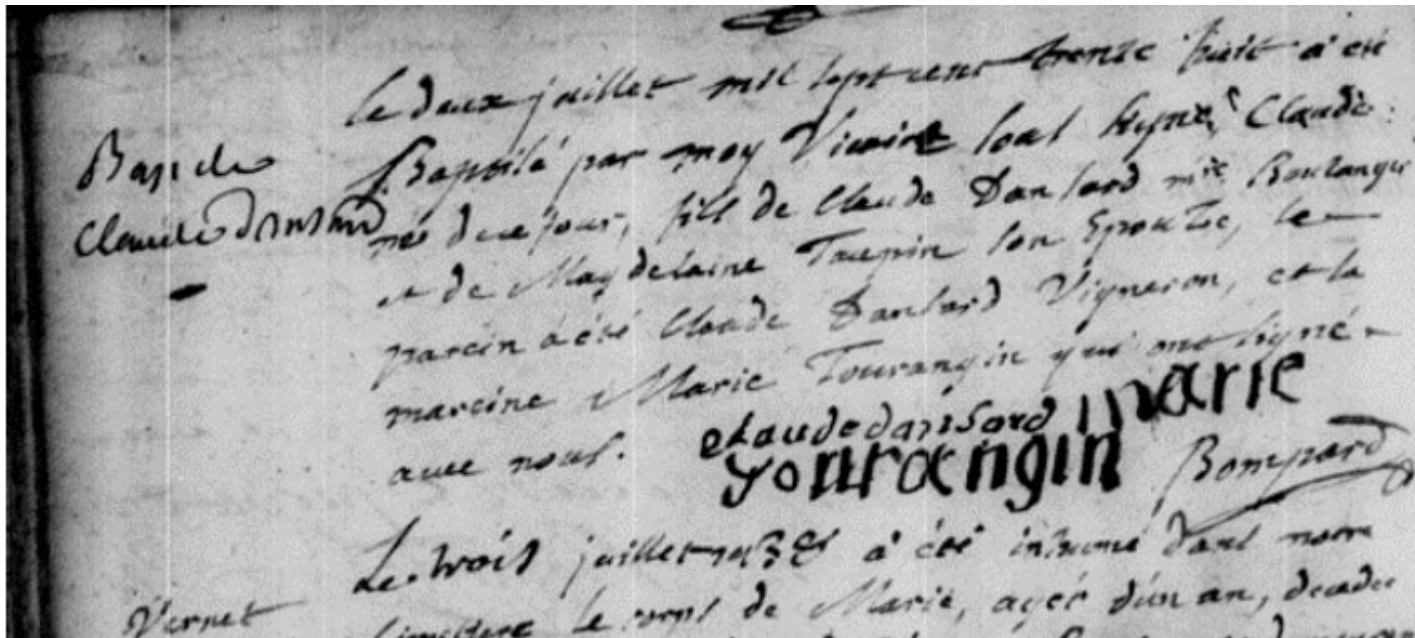 le deux juillet mil sept cens trente huit a été
Bap de
Baptisé par moy Vicaire sous signé, Claude
Claude Dansard
né de ce jour, fils de Claude Dansard mtre Boulanger
et de Magdelaine Taupin son Epouze, le
parein a été Claude Dansard Vigneron, et la
mareine Marie Tourangin qui ont signé
avec nous.
claude dansard marie
tourangin Bompard
Le trois juillet a été inhumé dans notre
Vernet
cimetiere le corps de Marie, agée d'un an, decedee